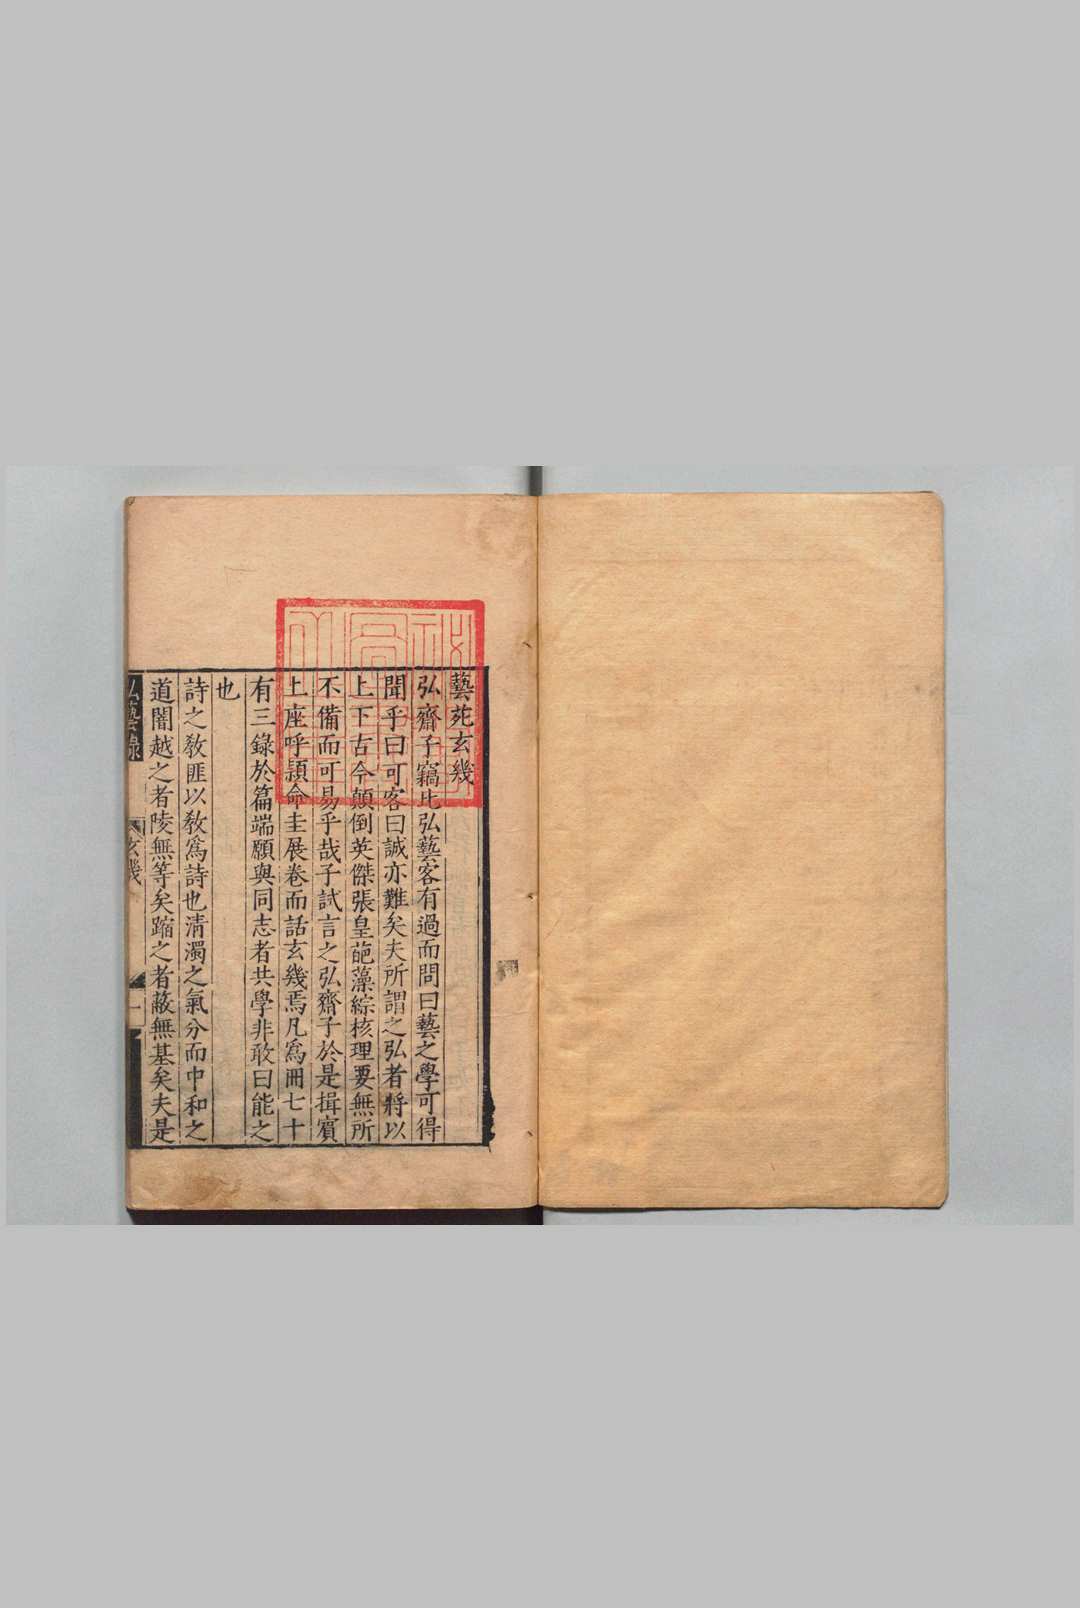 藝苑玄幾
弘齋子竊比弘藝客有過而問曰藝之學可得
聞乎曰可客曰誠亦難矣夫所謂之弘者將以
上下古今顛倒英傑張皇葩藻綜核理要無所
不備而可易乎哉子試言之弘齋子於是揖賓
上座呼穎命圭展卷而話玄幾焉凡為冊七十
有三錄於篇端願與同志者共學非敢曰能之
也
詩之教匪以教為詩也清濁之氣分而中和之
道闇越之者陵無等矣蹜之者蔽無基矣夫是
弘藝錄
玄幾
一